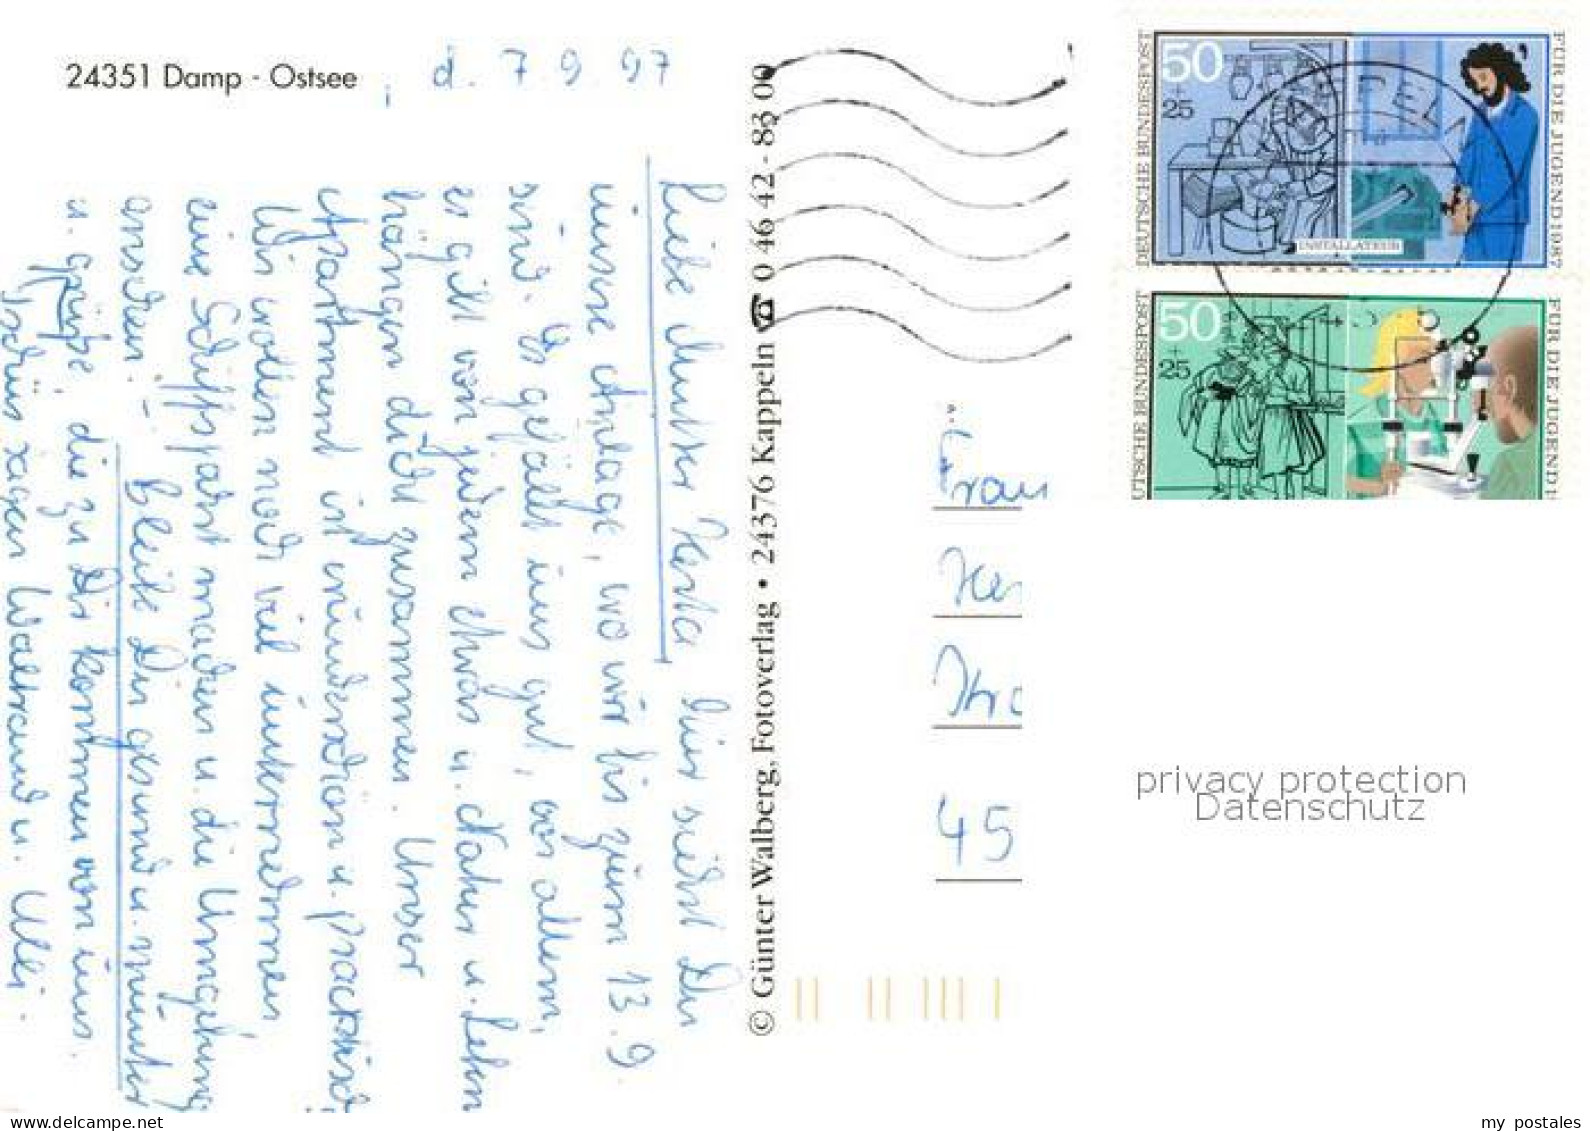 24351 Damp - Ostsee
, d. 7.9.97
Liebe Mutter Herta, hier siehst Du
unsere Anlage, wo wir bis zum 13.9.
sind. Es gefällt uns gut, vor allem,
es gibt von jedem etwas u. Natur u. Leben
hängen dicht zusammen. Unser
Apartment ist wunderschön u. praktisch
Wir wollen noch viel unternehmen
eine Schiffsfahrt machen u. die Umgebung
ansehen. - Bleib Du gesund u. munter
u. grüße, die zu Dir kommen von uns.
Tschüs sagen Waltraud u. Ulli.
© Günter Walberg, Fotoverlag • 24376 Kappeln ☎ 0 46 42 - 83 00
50
+
25
DEUTSCHE BUNDESPOST
FÜR DIE JUGEND 1987
INSTALLATEUR
50
+
25
UTSCHE BUNDESPOST
FÜR DIE JUGEND 1
Frau
Her
45
privacy protection
Datenschutz
www.delcampe.net
my_postales